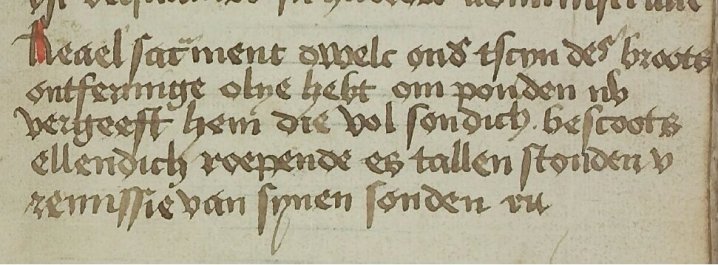 Heael sacment dwelc ond tscyn des broots
ontferminge olye hebt om ponden nb
vergeeft hem die vol sondich bescoots
ellendich roepende es tallen stonden v
remissie van synen sonden